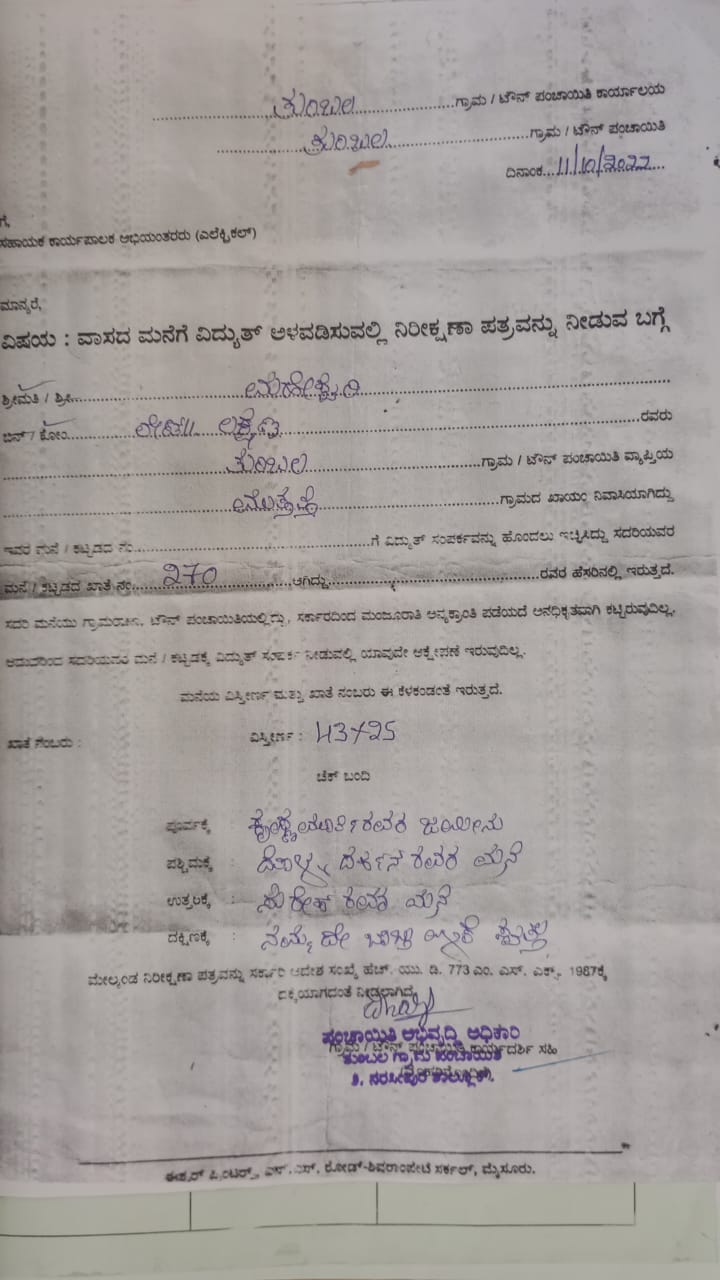 ತುಂಬಲ ಗ್ರಾಮ / ಟೌನ್ ಪಂಚಾಯಿತಿ ಕಾರ್ಯಾಲಯ
ತುಂಬಲ ಗ್ರಾಮ / ಟೌನ್ ಪಂಚಾಯಿತಿ
ದಿನಾಂಕ... 11/10/2022
ಗೆ,
ಸಹಾಯಕ ಕಾರ್ಯಪಾಲಕ ಅಭಿಯಂತರರು (ಎಲೆಕ್ಟ್ರಿಕಲ್)
ಮಾನ್ಯರೆ,
ವಿಷಯ : ವಾಸದ ಮನೆಗೆ ವಿದ್ಯುತ್ ಅಳವಡಿಸುವಲ್ಲಿ ನಿರೀಕ್ಷಣಾ ಪತ್ರವನ್ನು ನೀಡುವ ಬಗ್ಗೆ
ಶ್ರೀಮತಿ / ಶ್ರೀ... ಮಹೇಶ್ವರಿ
ಬಿನ್ / ಕೋಂ. ಲೇಟ್ ಲಕ್ಷ್ಮಣ ರವರು
ತುಂಬಲ ಗ್ರಾಮ / ಟೌನ್ ಪಂಚಾಯಿತಿ ವ್ಯಾಪ್ತಿಯ
ಗ್ರಾಮದ ಖಾಯಂ ನಿವಾಸಿಯಾಗಿದ್ದು
ಇವರ ಮನೆ / ಕಟ್ಟಡದ ನಂ. ಗೆ ವಿದ್ಯುತ್ ಸಂಪರ್ಕವನ್ನು ಹೊಂದಲು ಇಚ್ಚಿಸಿದ್ದು ಸದರಿಯವರ
ಮನೆ / ಕಟ್ಟಡದ ಖಾತೆ ನಂ. 270 ಆಗಿದ್ದು ರವರ ಹೆಸರಿನಲ್ಲಿ ಇರುತ್ತದೆ.
ಸದರಿ ಮನೆಯು ಗ್ರಾಮಠಾಣ, ಟೌನ್ ಪಂಚಾಯಿತಿಯಲ್ಲಿದ್ದು, ಸರ್ಕಾರದಿಂದ ಮಂಜೂರಾತಿ ಅನ್ಯಕ್ರಾಂತಿ ಪಡೆಯದೆ ಅನಧಿಕೃತವಾಗಿ ಕಟ್ಟಿರುವುದಿಲ್ಲ,
ಆದುದರಿಂದ ಸದರಿಯವರ ಮನೆ / ಕಟ್ಟಡಕ್ಕೆ ವಿದ್ಯುತ್ ಸಂಪರ್ಕ ನೀಡುವಲ್ಲಿ ಯಾವುದೇ ಆಕ್ಷೇಪಣೆ ಇರುವುದಿಲ್ಲ.
ಮನೆಯ ವಿಸ್ತೀರ್ಣ ಮತ್ತು ಖಾತೆ ನಂಬರು ಈ ಕೆಳಕಂಡಂತೆ ಇರುತ್ತದೆ.
ಖಾತೆ ನಂಬರು : ವಿಸ್ತೀರ್ಣ : 43X25
ಚೆಕ್ ಬಂದಿ
ಪೂರ್ವಕ್ಕೆ : ಕೃಷ್ಣಮೂರ್ತಿ ರವರ ಜಮೀನು
ಪಶ್ಚಿಮಕ್ಕೆ : ರವರ ಮನೆ
ಉತ್ತರಕ್ಕೆ : ಸುರೇಶ್ ರವರ ಮನೆ
ದಕ್ಷಿಣಕ್ಕೆ :
ಮೇಲ್ಕಂಡ ನಿರೀಕ್ಷಣಾ ಪತ್ರವನ್ನು ಸರ್ಕಾರಿ ಆದೇಶ ಸಂಖ್ಯೆ ಹೆಚ್. ಯು. ಡಿ. 773 ಎಂ. ಎಸ್. ಎಕ್ಸ್. 1987ಕ್ಕೆ
ಧಕ್ಕೆಯಾಗದಂತೆ ನೀಡಲಾಗಿದೆ.
ಪಂಚಾಯಿತಿ ಅಭಿವೃದ್ಧಿ ಅಧಿಕಾರಿ
ಗ್ರಾಮ / ಟೌನ್ ಪಂಚಾಯಿತಿ ಕಾರ್ಯದರ್ಶಿ ಸಹಿ
ತುಂಬಲ ಗ್ರಾಮ ಪಂಚಾಯಿತಿ
ತಿ. ನರಸೀಪುರ ತಾಲ್ಲೂಕ್.
ಈಶ್ವರ್ ಪ್ರಿಂಟರ್ಸ್, ಎನ್.ಎಸ್. ರೋಡ್-ಶಿವರಾಂಪೇಟೆ ಸರ್ಕಲ್, ಮೈಸೂರು.